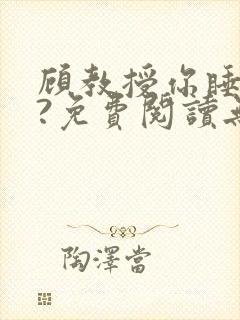 顾教授你睡
?免費閱讀無
陶澤當